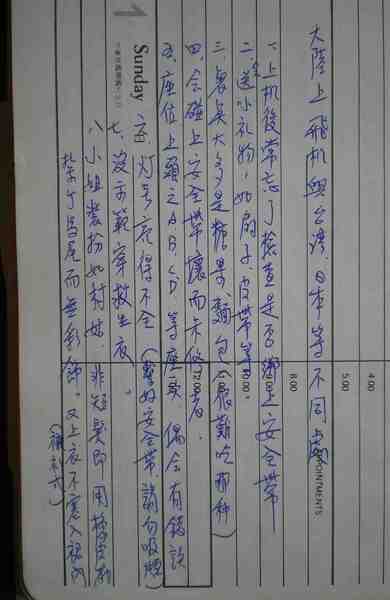 大陸上飛机與台灣.日本等不同点
一.上机後常忘了檢查是否綁上安全帶
二.送小礼物,如扇子.皮帶等.
三.裏头大多是糖果麵包(很難吃那种)
四.会碰上安全帶壞而未修者.
五.座位上頭之ABCD等座號,偶会有錯誤
六.灯号亮得不全(繫好安全帶.請勿吸煙)
七.沒示範穿救生衣
八.小姐裝扮如村姑.非短髮即用橡皮筋
紮了馬尾而無彩飾.又上衣不塞入裙內
(補充六)
Sunday
1
APPOINTMENTS
4.00
5.00
8.00